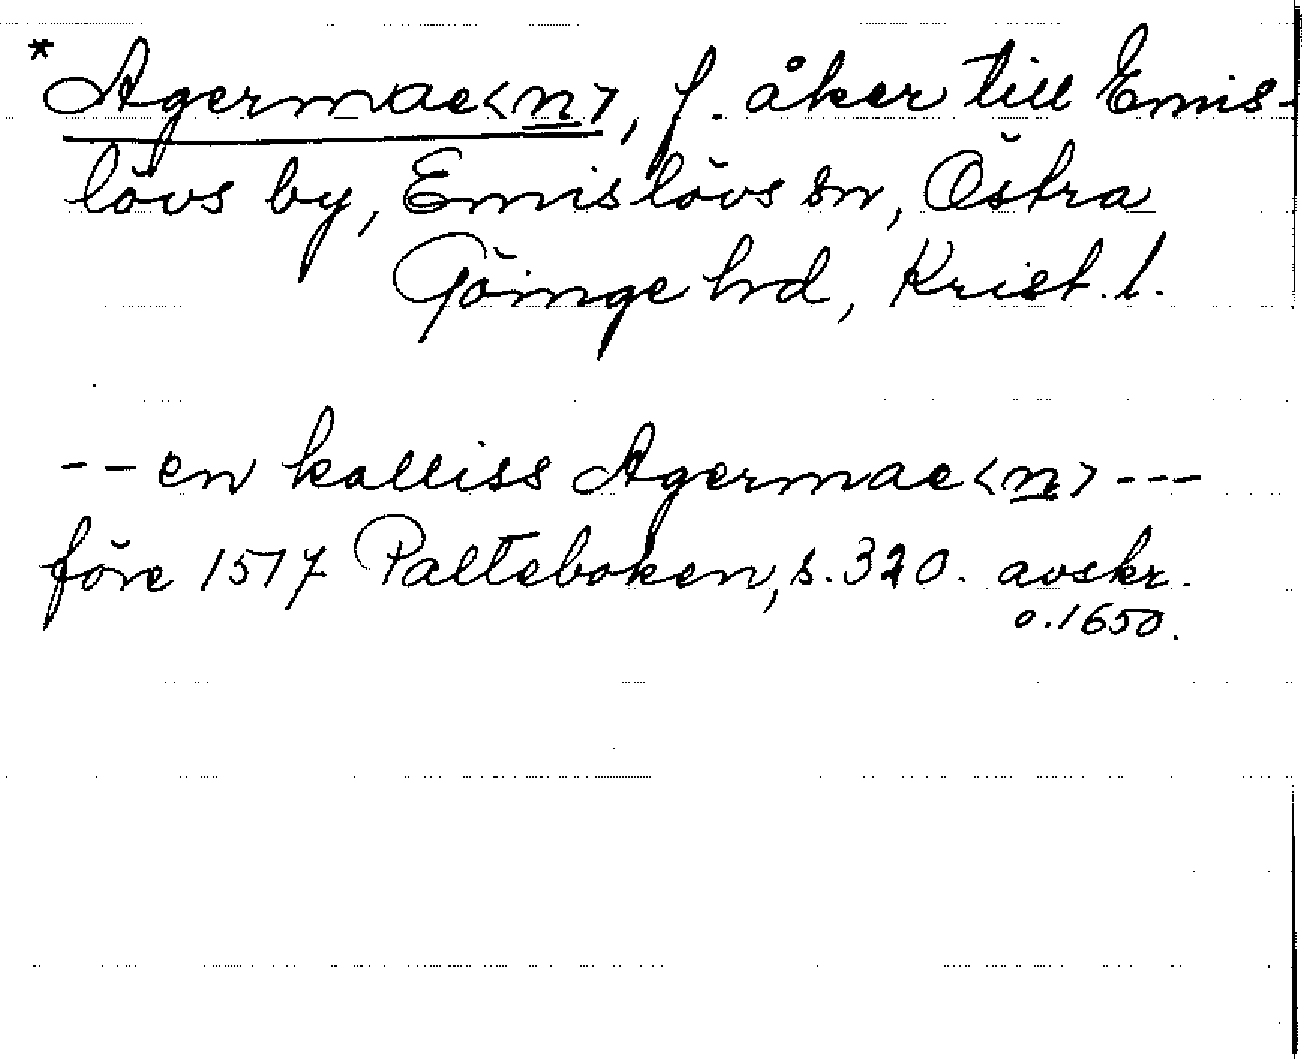 * Agermae<n>, f. åker till Emis-
lövs by, Emislövs sn, Östra
Göinge hrd, Krist. l.
-- en kalliss Agermae<n> ---
före 1517 Palteboken, s. 320. avskr.
o. 1650.